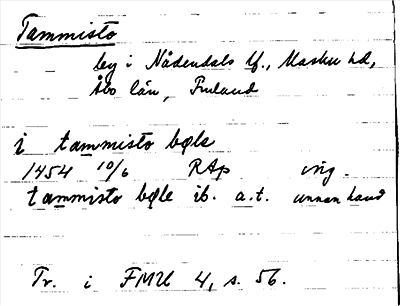 Tammisto
by i Nådendals lf., Masku hd,
Åbo län, Finland
i tammisto bole
1454 10/6 RAp orig.
tammisto bole ib. a.t. annan hand
Tr. i FMU 4, s. 56.